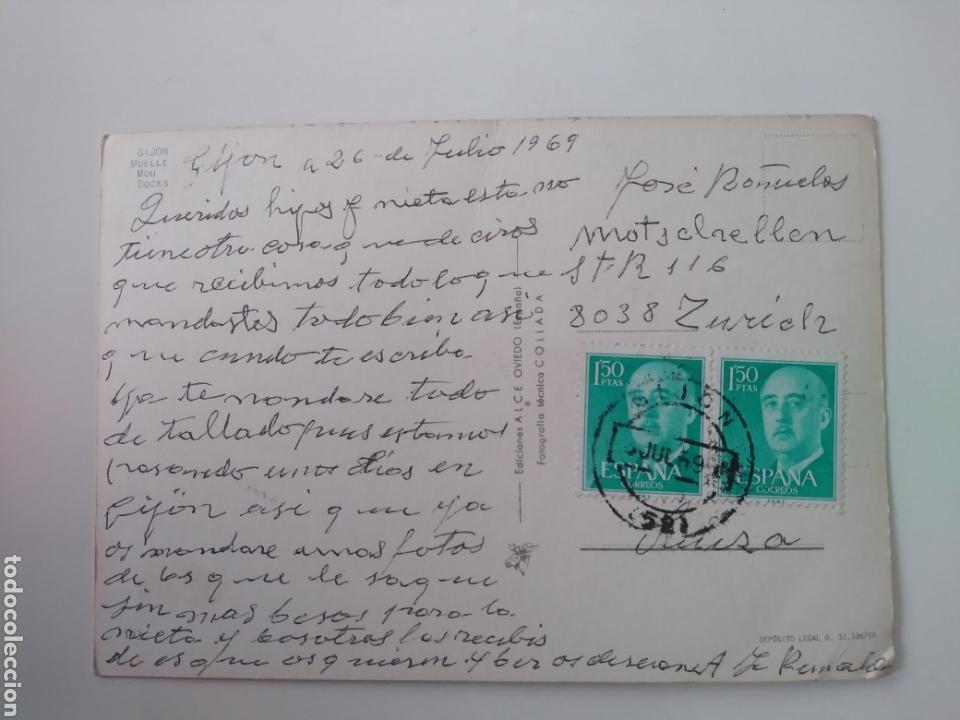 GIJON
MUELLE
MOU
DOCKS
Gijon a 26 de Julio 1969
Queridos hijos y nieta esta no
tiene otra cosa que deciros
que recibimos todo lo que
mandastes todo bien asi
que cundo te escriba
ya te mandare todo
de tallado pues estamos
pasando unos dias en
Gijón asi que ya
os mandare unas fotos
de las que le saque
sin mas besos para la
nieta y bosotros los recibis
de es que os quieren y beros desean
José Bañuelos
Motschellen
St.R 116
8038 Zurich
Suiza
Ediciones ALCE OVIEDO (España)
Fotografía técnica COLLADA
1'50
PTAS
ESPAÑA
CORREOS
1'50
PTAS
ESPAÑA
CORREOS
GIJON
JUL 69
DEPÓSITO LEGAL B. 32.526/IX
todocoleccion